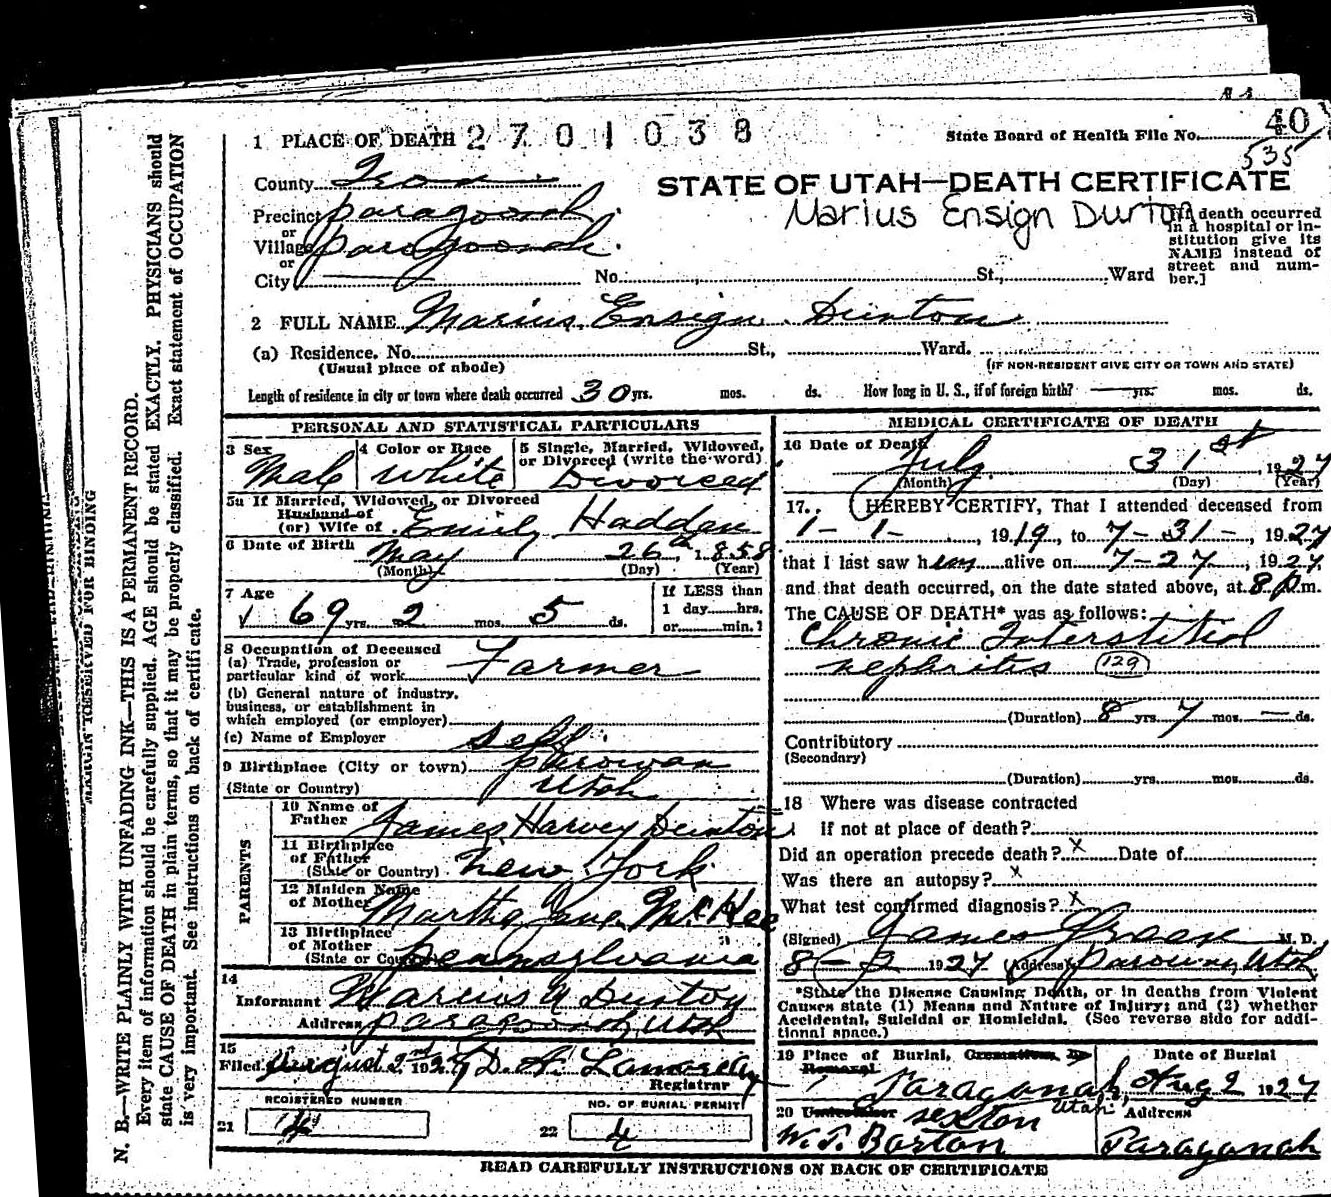 1 PLACE OF DEATH 2701038
State Board of Health File No. 40
535
County Iron
STATE OF UTAH—DEATH CERTIFICATE
Marius Ensign Durton
Precinct Paragoonah
or
Village Paragoonah
or
City No. St., Ward
[If death occurred
in a hospital or in-
stitution give its
NAME instead of
street and num-
ber.]
2 FULL NAME Marius Ensign Dunton
(a) Residence. No. St., Ward.
(Usual place of abode) (IF NON-RESIDENT GIVE CITY OR TOWN AND STATE)
Length of residence in city or town where death occurred 30 yrs. mos. ds. How long in U. S., if of foreign birth? — yrs. mos. ds.
PERSONAL AND STATISTICAL PARTICULARS
3 Sex 4 Color or Race 5 Single, Married, Widowed,
or Divorced (write the word)
Male White Divorced
5a If Married, Widowed, or Divorced
Husband of
(or) Wife of Emily Hadden
6 Date of Birth May 26th, 1858
(Month) (Day) (Year)
7 Age If LESS than
69 yrs. 2 mos. 5 ds. 1 day hrs.
or min.?
8 Occupation of Deceased
(a) Trade, profession or
particular kind of work Farmer
(b) General nature of industry,
business, or establishment in
which employed (or employer)
(c) Name of Employer self
9 Birthplace (City or town) Parowan
(State or Country) Utah
PARENTS
10 Name of
Father James Harvey Dunton
11 Birthplace
of Father
(State or Country) New York
12 Maiden Name
of Mother Martha Jane McKee
13 Birthplace
of Mother
(State or Country) Pennsylvania
14
Informant Marcius Dunton
Address Paragoonah, Utah
15
Filed August 2nd 1927
Registrar
REGISTERED NUMBER NO. OF BURIAL PERMIT
21 4 22 4
MEDICAL CERTIFICATE OF DEATH
16 Date of Death July 31st, 1927
(Month) (Day) (Year)
17. I HEREBY CERTIFY, That I attended deceased from
1-1-, 1919, to 7-31-, 1927
that I last saw him alive on 7-27, 1927
and that death occurred, on the date stated above, at 8 p.m.
The CAUSE OF DEATH* was as follows:
Chronic Interstitial
nephritis (129)
(Duration) 8 yrs. 7 mos. — ds.
Contributory
(Secondary)
(Duration) yrs. mos. ds.
18 Where was disease contracted
if not at place of death?
Did an operation precede death? x Date of
Was there an autopsy? x
What test confirmed diagnosis? x
(Signed) James Green M. D.
8-2 1927 (Address) Parowan, Utah
*State the Disease Causing Death, or in deaths from Violent
Causes state (1) Means and Nature of Injury; and (2) whether
Accidental, Suicidal or Homicidal. (See reverse side for addi-
tional space.)
19 Place of Burial, Cremation, or Date of Burial
Removal
Paragonah, Utah Aug 2 1927
20 Undertaker sexton Address
W. T. Barton Paragonah
READ CAREFULLY INSTRUCTIONS ON BACK OF CERTIFICATE
MARGIN RESERVED FOR BINDING
N. B.—WRITE PLAINLY WITH UNFADING INK—THIS IS A PERMANENT RECORD.
Every item of information should be carefully supplied. AGE should be stated EXACTLY. PHYSICIANS should
state CAUSE OF DEATH in plain terms, so that it may be properly classified. Exact statement of OCCUPATION
is very important. See instructions on back of certificate.